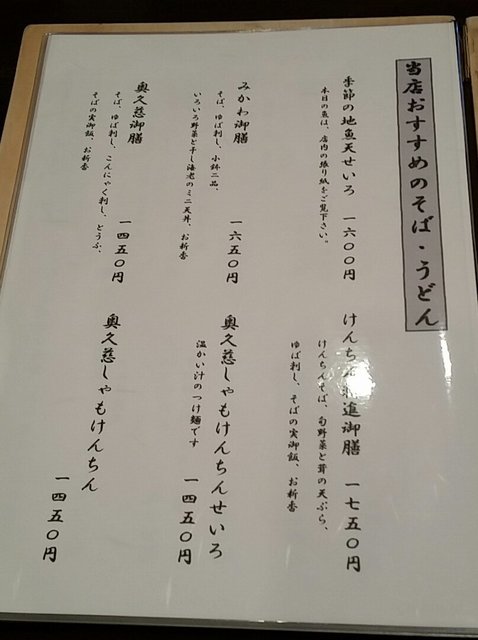 当店おすすめのそば・うどん
季節の地魚天せいろ 一六〇〇円
本日の魚は、店内の張り紙をご覧下さい。
みかわ御膳
そば、ゆば刺し、小鉢二品、
いろいろ野菜と干し海老のミニ天丼、お新香
一六五〇円
奥久慈御膳
そば、ゆば刺し、こんにゃく刺し、とうふ、
そばの実御飯、お新香
一四五〇円
けんちん 進御膳 一七五〇円
けんちんそば、旬野菜と茸の天ぷら、
ゆば刺し、そばの実御飯、お新香
奥久慈しゃもけんちんせいろ
温かい汁のつけ麺です
一四五〇円
奥久慈しゃもけんちん
一四五〇円